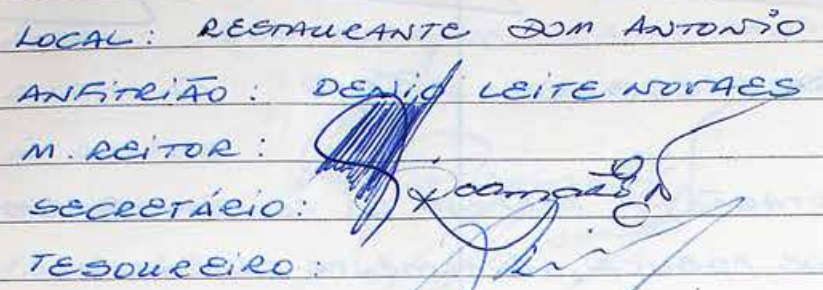 LOCAL: RESTAURANTE DOM ANTONIO
ANFITRIÃO: DENIO LEITE NOVAES
M. REITOR:
SECRETÁRIO:
TESOUREIRO: